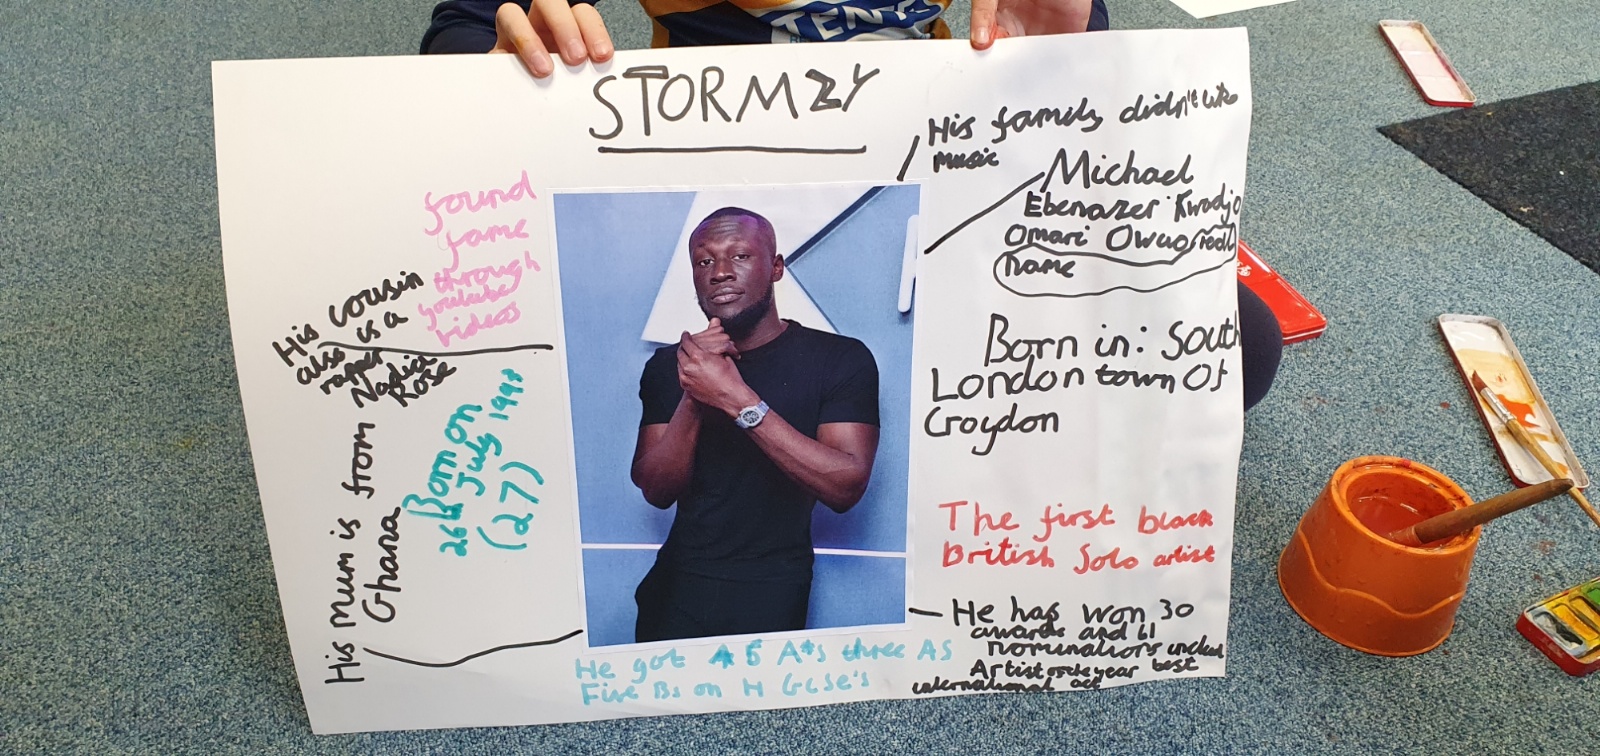 STORMZY
His family didn't like
music
Michael
Ebenazer Kwadjo
Omari Owuo real
name
Born in: South
London town Of
Croydon
The first black
British Solo artist
He has won 30
awards and 61
nominations
Artist of the year best
international act
found
fame
through
youtube
videos
His cousin
also is a
rapper
Nadia
Rose
26 Born on
July 1993
(27)
His mum is from
Ghana
He got 5 A*s three AS
Five Bs on GCSE's